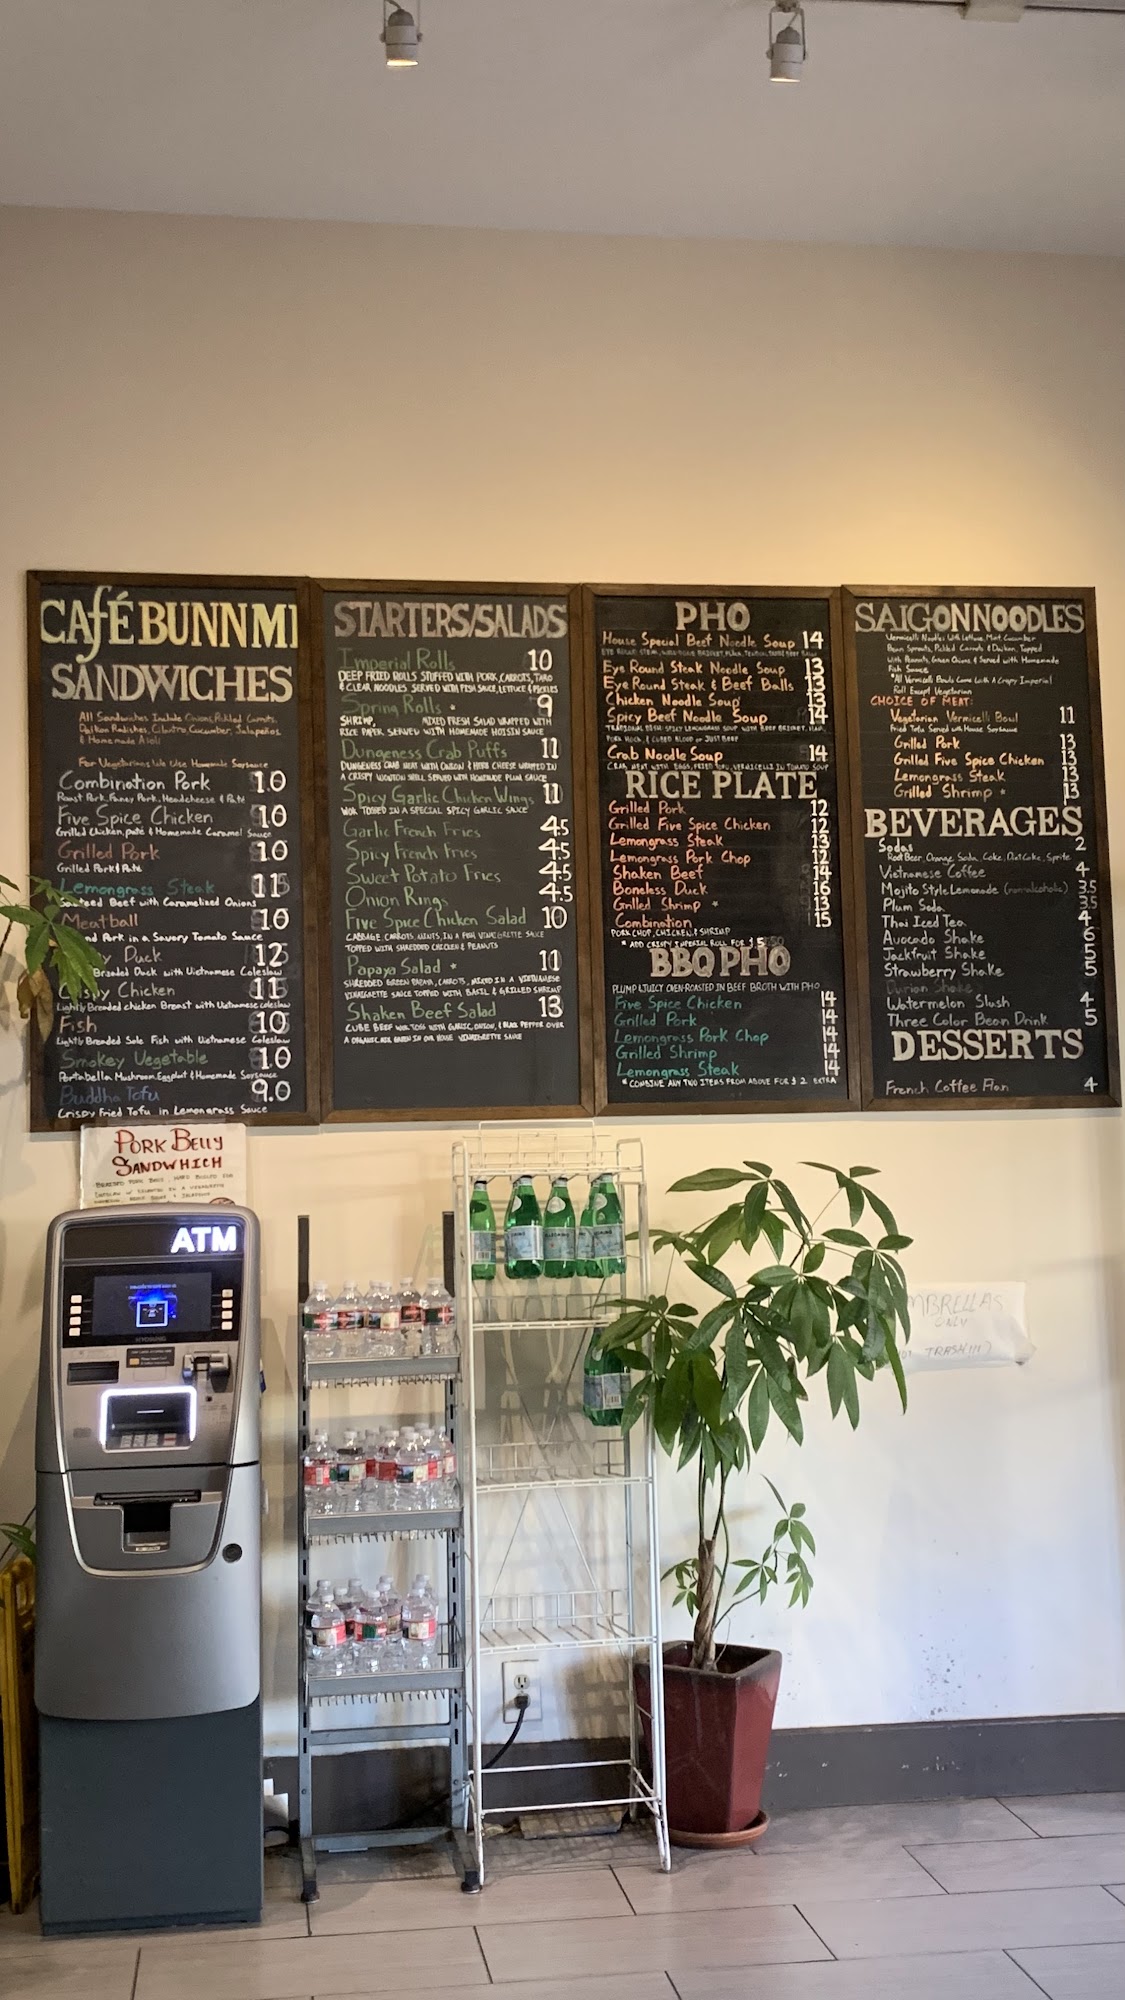 CAFÉ BUNN MI
SANDWICHES
All Sandwiches Include Onions, Pickled Carrots,
Daikon Radishes, Cilantro, Cucumber, Jalapeños
& Homemade Aioli
For Vegetarians We Use Homemade Soysauce
Combination Pork 10
Roast Pork, Fancy Pork, Headcheese & Pate
Five Spice Chicken 10
Grilled Chicken, pate & Homemade Caramel Sauce
Grilled Pork 10
Grilled Pork & Pate
Lemongrass Steak 11
Sauteed Beef with Caramelized Onions
Meatball 10
nd Pork in a Savory Tomato Sauce
y Duck 12
Breaded Duck with Vietnamese Coleslaw
Crispy Chicken 11
Lightly Breaded chicken Breast with Vietnamese coleslaw
Fish 10
Lightly Breaded Sole Fish with Vietnamese Coleslaw
Smokey Vegetable 10
Portabella Mushroom, Eggplant & Homemade Soysauce
Buddha Tofu 9.0
Crispy Fried Tofu in Lemongrass Sauce
STARTERS/SALADS
Imperial Rolls 10
DEEP FRIED ROLLS STUFFED WITH PORK, CARROTS, TARO
& CLEAR NOODLES SERVED WITH FISH SAUCE, LETTUCE & PICKLES
Spring Rolls * 9
SHRIMP, MIXED FRESH SALAD WRAPPED WITH
RICE PAPER, SERVED WITH HOMEMADE HOISIN SAUCE
Dungeness Crab Puffs 11
DUNGENESS CRAB MEAT WITH ONION & HERB CHEESE WRAPPED IN
A CRISPY WONTON SHELL SERVED WITH HOMEMADE PLUM SAUCE
Spicy Garlic Chicken Wings 11
WOK TOSSED IN A SPECIAL SPICY GARLIC SAUCE
Garlic French Fries 4.5
Spicy French Fries 4.5
Sweet Potato Fries 4.5
Onion Rings 4.5
Five Spice Chicken Salad 10
CABBAGE, CARROTS, MINTS, IN A FISH VINEGRETTE SAUCE
TOPPED WITH SHREDDED CHICKEN & PEANUTS
Papaya Salad * 11
SHREDDED GREEN PAPAYA, CARROTS, MIXED IN A VIETNAMESE
VINAIGRETTE SAUCE TOPPED WITH BASIL & GRILLED SHRIMP
Shaken Beef Salad 13
CUBE BEEF WOK TOSS WITH GARLIC, ONION, & BLACK PEPPER OVER
A ORGANIC MIX GREEN IN OUR HOUSE VINAIGRETTE SAUCE
PHO
House Special Beef Noodle Soup 14
Eye Round Steak Noodle Soup 13
Eye Round Steak & Beef Balls 13
Chicken Noodle Soup 13
Spicy Beef Noodle Soup 14
TRADITIONAL DISH: SPICY LEMONGRASS SOUP WITH BEEF BRISKET, HAM,
PORK HOCK, & CUBED BLOOD or JUST BEEF
Crab Noodle Soup 14
CRAB MEAT WITH EGGS, FRIED TOFU, VERMICELLI IN TOMATO SOUP
RICE PLATE
Grilled Pork 12
Grilled Five Spice Chicken 12
Lemongrass Steak 13
Lemongrass Pork Chop 12
Shaken Beef 14
Boneless Duck 16
Grilled Shrimp * 13
Combination 15
PORK CHOP, CHICKEN, & SHRIMP
* ADD CRISPY IMPERIAL ROLL FOR $5
BBQ PHO
PLUMP & JUICY OVEN-ROASTED IN BEEF BROTH WITH PHO
Five Spice Chicken 14
Grilled Pork 14
Lemongrass Pork Chop 14
Grilled Shrimp 14
Lemongrass Steak 14
* COMBINE ANY TWO ITEMS FROM ABOVE FOR $2 EXTRA
SAIGON NOODLES
Vermicelli Noodles With Lettuce, Mint, Cucumber
Bean Sprouts, Pickled Carrots & Daikon, Topped
With Peanuts, Green Onions & Served with Homemade
Fish Sauce
*All Vermicelli Bowls Come With A Crispy Imperial
Roll Except Vegetarian
CHOICE OF MEAT:
Vegetarian Vermicelli Bowl 11
Fried Tofu Served with House Soysauce
Grilled Pork 13
Grilled Five Spice Chicken 13
Lemongrass Steak 13
Grilled Shrimp * 13
BEVERAGES
Sodas 2
Root Beer, Orange Soda, Coke, Diet Coke, Sprite
Vietnamese Coffee 4
Mojito Style Lemonade (non-alcoholic) 3.5
Plum Soda 3.5
Thai Iced Tea 4
Avocado Shake 6
Jackfruit Shake 5
Strawberry Shake 5
Durian Shake
Watermelon Slush 4
Three Color Bean Drink 5
DESSERTS
French Coffee Flan 4
PORK BELLY
SANDWHICH
ATM
HYOSUNG
MBRELLAS
ONLY
NOT TRASH!!!)